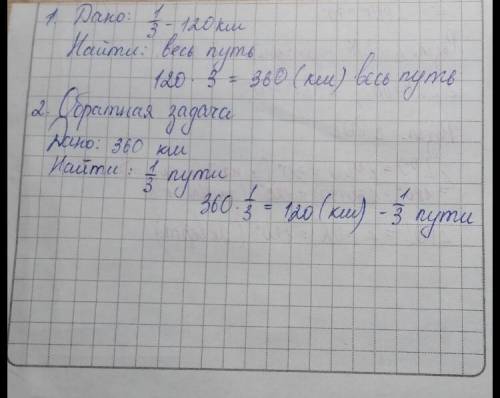 1. Дано: 1/3 - 120 км
Найти: весь путь
120 · 3 = 360 (км) весь путь
2. Обратная задача
Дано: 360 км
Найти: 1/3 пути
360 · 1/3 = 120 (км) - 1/3 пути